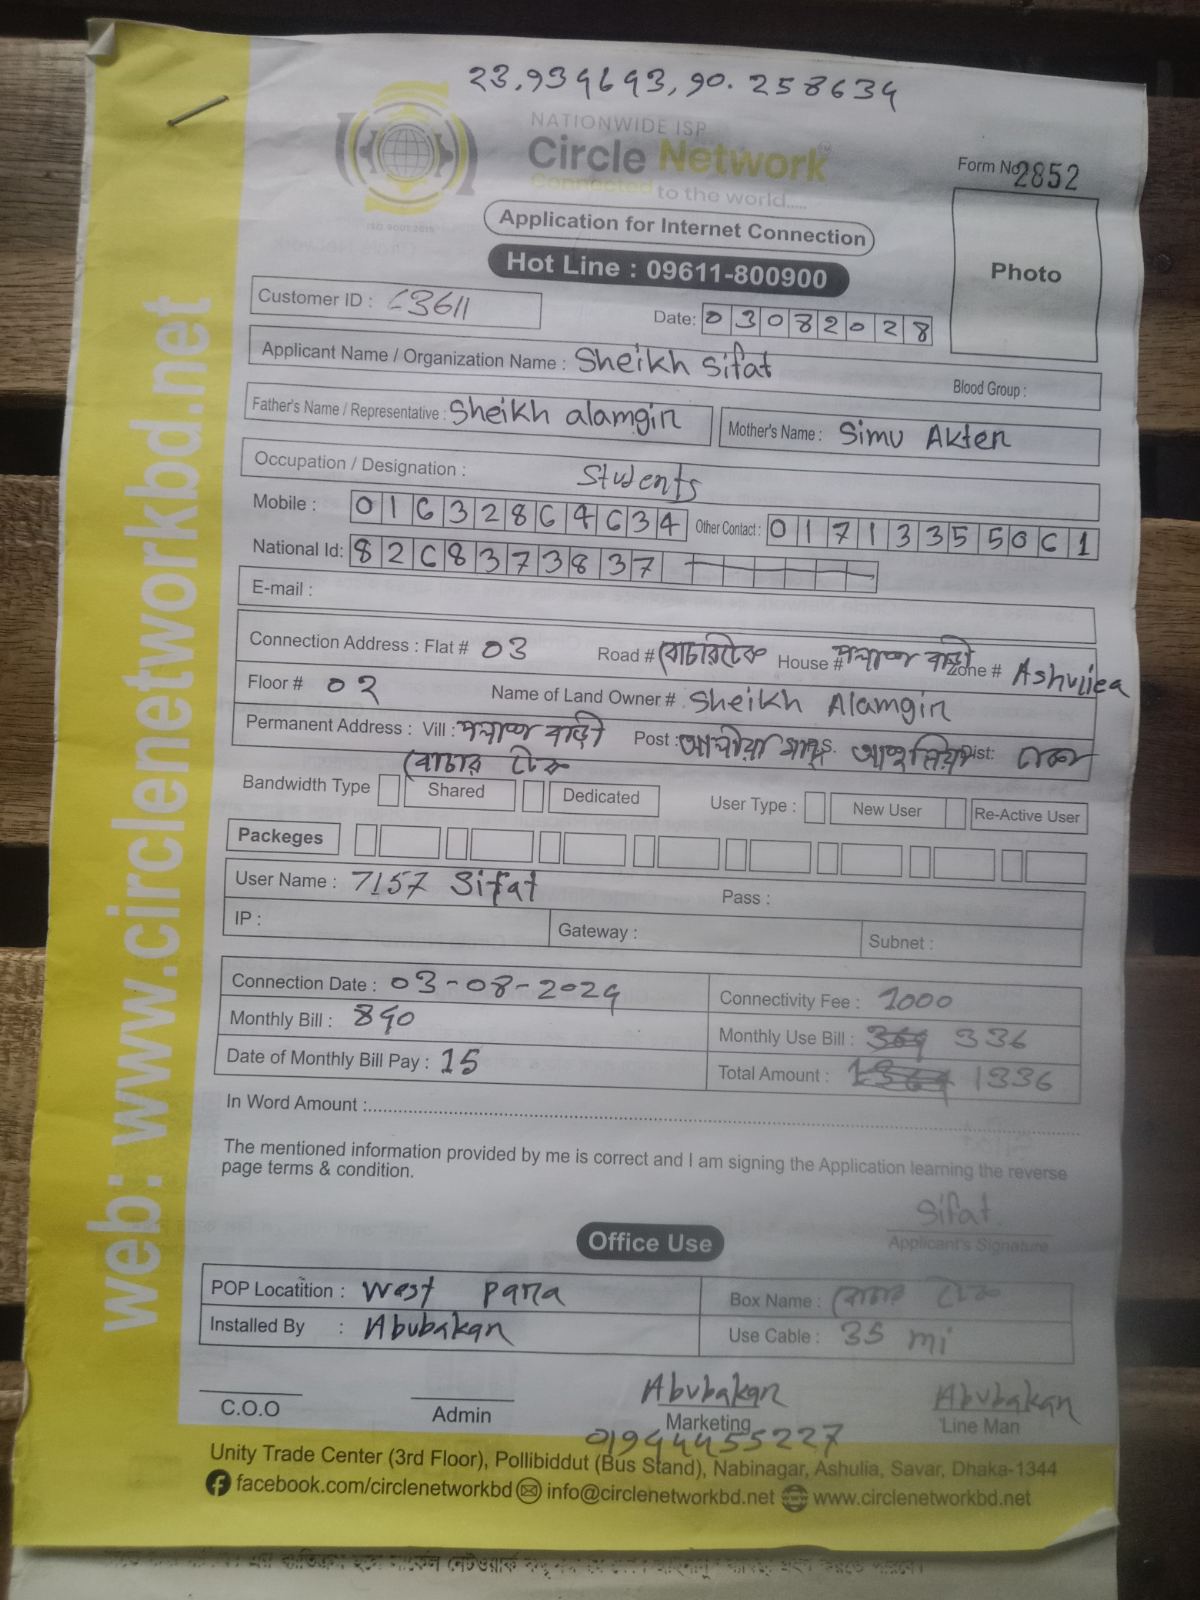 23.939693, 90.258639
NATIONWIDE ISP
Circle Network
Connected to the world.....
ISO 9001:2015
Form No 2852
Application for Internet Connection
Hot Line : 09611-800900
Photo
Customer ID : 23611
Date: 03082028
Applicant Name / Organization Name : Sheikh Sifat
Blood Group :
Father's Name / Representative : Sheikh alamgir
Mother's Name : Simu Akter
Occupation / Designation : Students
Mobile : 01632864634 Other Contact : 01713355061
National Id: 8268373837
E-mail :
Connection Address : Flat # 03 Road # House # বাড়ী Zone # Ashuliea
Floor # 02 Name of Land Owner # Sheikh Alamgir
Permanent Address : Vill : বাড়ী Post : P.S. আশুলিয়া Dist: ঢাকা
Bandwidth Type Shared Dedicated User Type : New User Re-Active User
Packeges
User Name : 7157 Sifat Pass :
IP : Gateway : Subnet :
Connection Date : 03-08-2024 Connectivity Fee : 1000
Monthly Bill : 840 Monthly Use Bill : 336
Date of Monthly Bill Pay : 15 Total Amount : 1336
In Word Amount :
The mentioned information provided by me is correct and I am signing the Application learning the reverse
page terms & condition.
Sifat
Applicant's Signature
Office Use
POP Locatition : West para Box Name :
Installed By : Abubakar Use Cable : 35 mi
C.O.O Admin Abubakar Marketing Abubakar Line Man
01944455227
Unity Trade Center (3rd Floor), Pollibiddut (Bus Stand), Nabinagar, Ashulia, Savar, Dhaka-1344
facebook.com/circlenetworkbd info@circlenetworkbd.net www.circlenetworkbd.net
web: www.circlenetworkbd.net